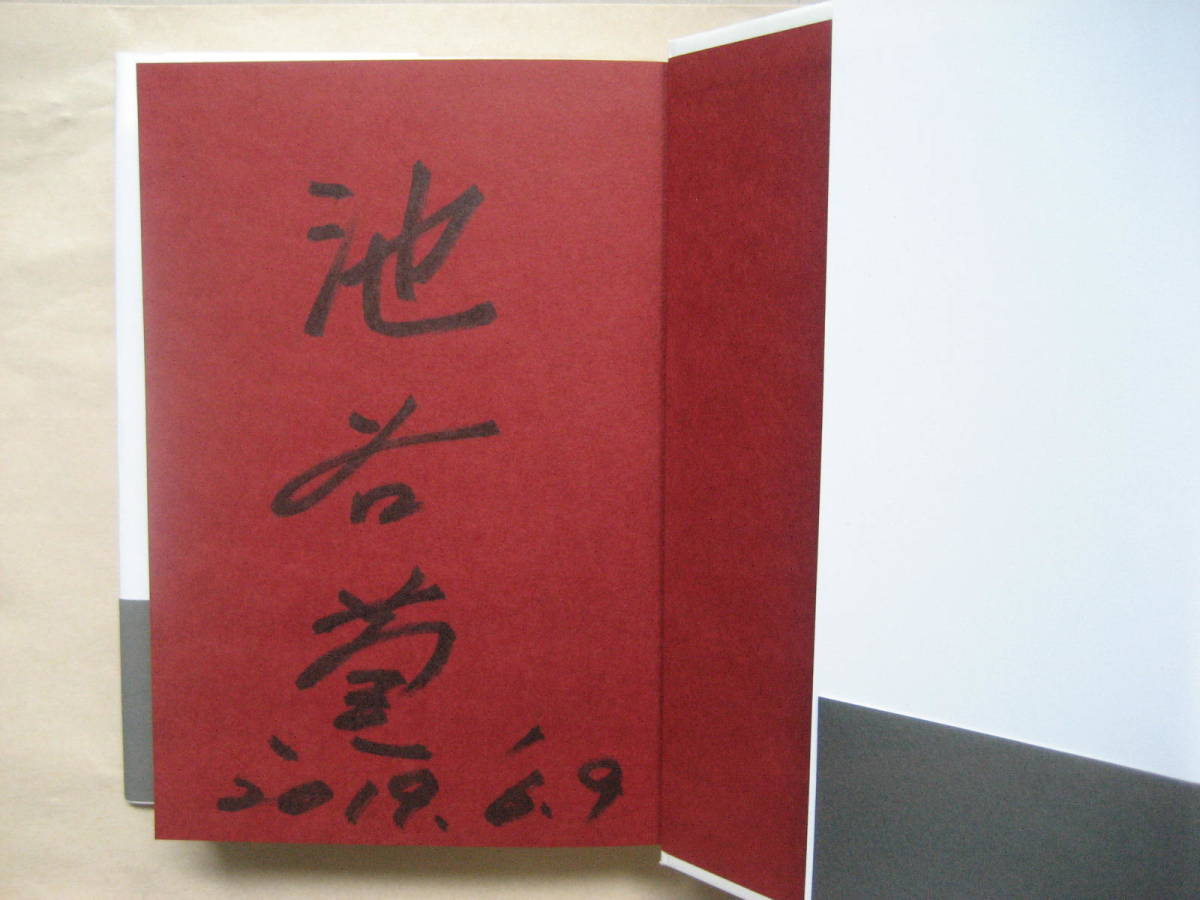 池谷薫
2019.6.9